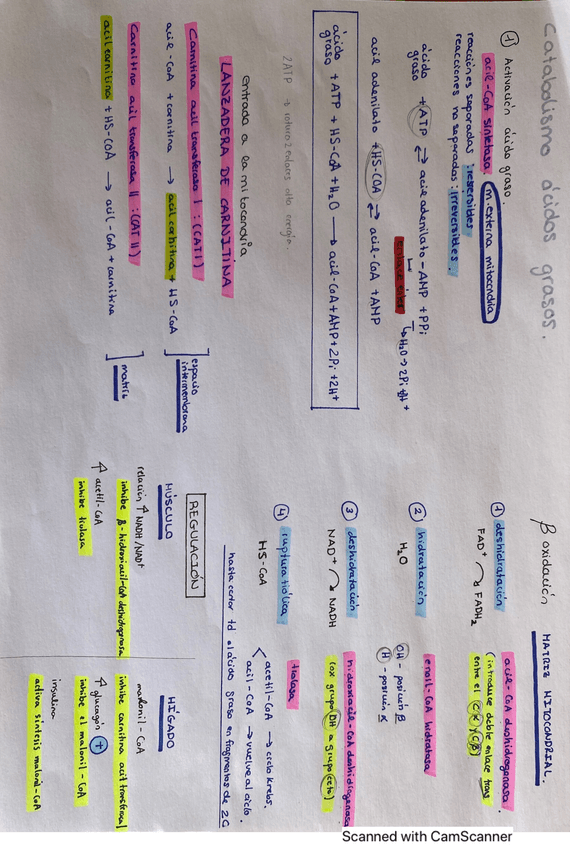 Catabolismo ácidos grasos.
① Activación ácido graso.
acil-CoA sintetasa m. externa mitocondria
reacciones separadas: reversibles
reacciones no separadas: irreversibles.
ácido graso + ATP ⇄ acil adenilato - AMP + PPi
↳ H₂O → 2Pi +
enlace éster
acil adenilato + HS-COA ⇄ acil-CoA + AMP
ácido graso + ATP + HS-CoA + H₂O → acil-CoA + AMP + 2Pi + 2H+
2ATP → rotura 2 enlaces alta energía.
entrada a la mitocondria
LANZADERA DE CARNITINA
Carnitina acil transferasa I : (CAT I)
acil-CoA + carnitina → acil carnitina + HS-CoA
espacio intermembrana
Carnitina acil transferasa II : (CAT II)
acil carnitina + HS-COA → acil-CoA + carnitina
matriz
β oxidación MATRIZ MITOCONDRIAL
① deshidratación acil-CoA deshidrogenasa
FAD+ → FADH₂ (introduce doble enlace trans
entre el Cα y Cβ)
② hidratación enoil-CoA hidratasa
H₂O OH - posición β
H - posición α
③ deshidratación hidroxiacil-CoA deshidrogenasa
NAD+ → NADH (ox grupo OH a grupo ceto)
④ ruptura tiólica tiolasa
HS-CoA < acetil-CoA → ciclo krebs.
acil-CoA → vuelve al ciclo.
hasta cortar td el ácido graso en fragmentos de 2C
REGULACIÓN
MÚSCULO
relación ↑ NADH/NAD+
inhibe β-hidroxiacil-CoA deshidrogenasa
↑ acetil-CoA
inhibe tiolasa
HÍGADO
malonil-CoA
inhibe carnitina acil transferasa I
↑ glucagón +
inhibe el malonil-CoA
insulina
activa síntesis malonil-CoA
Scanned with CamScanner